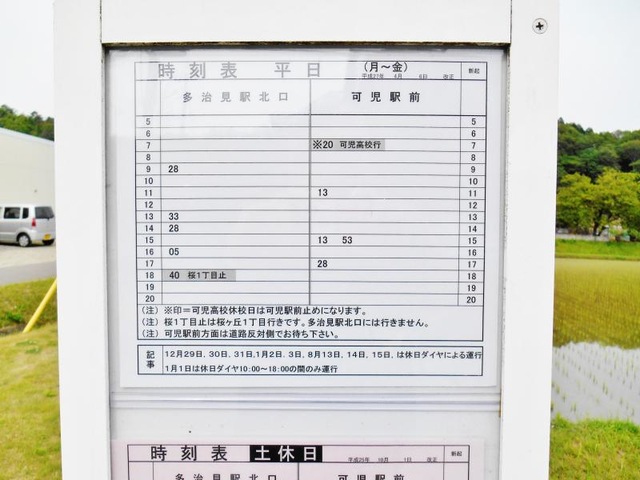 時刻表 平日 (月～金) 平成27年 4月 6日 改正 新起
多治見駅北口 可児駅前
5 5
6 6
7 ※20 可児高校行 7
8 8
9 28 9
10 10
11 13 11
12 12
13 33 13
14 28 14
15 13 53 15
16 05 16
17 28 17
18 40 桜1丁目止 18
19 19
20 20
(注) ※印＝可児高校休校日は可児駅前止めになります。
(注) 桜1丁目止は桜ヶ丘1丁目行きです。多治見駅北口には行きません。
(注) 可児駅前方面は道路反対側でお待ち下さい。
記事 12月29日, 30日, 31日,1月2日, 3日, 8月13日, 14日, 15日, は休日ダイヤによる運行
1月1日は休日ダイヤ10:00～18:00の間のみ運行
時刻表 土休日 平成25年 10月 1日 改正 新起
多治見駅北口 可児駅前